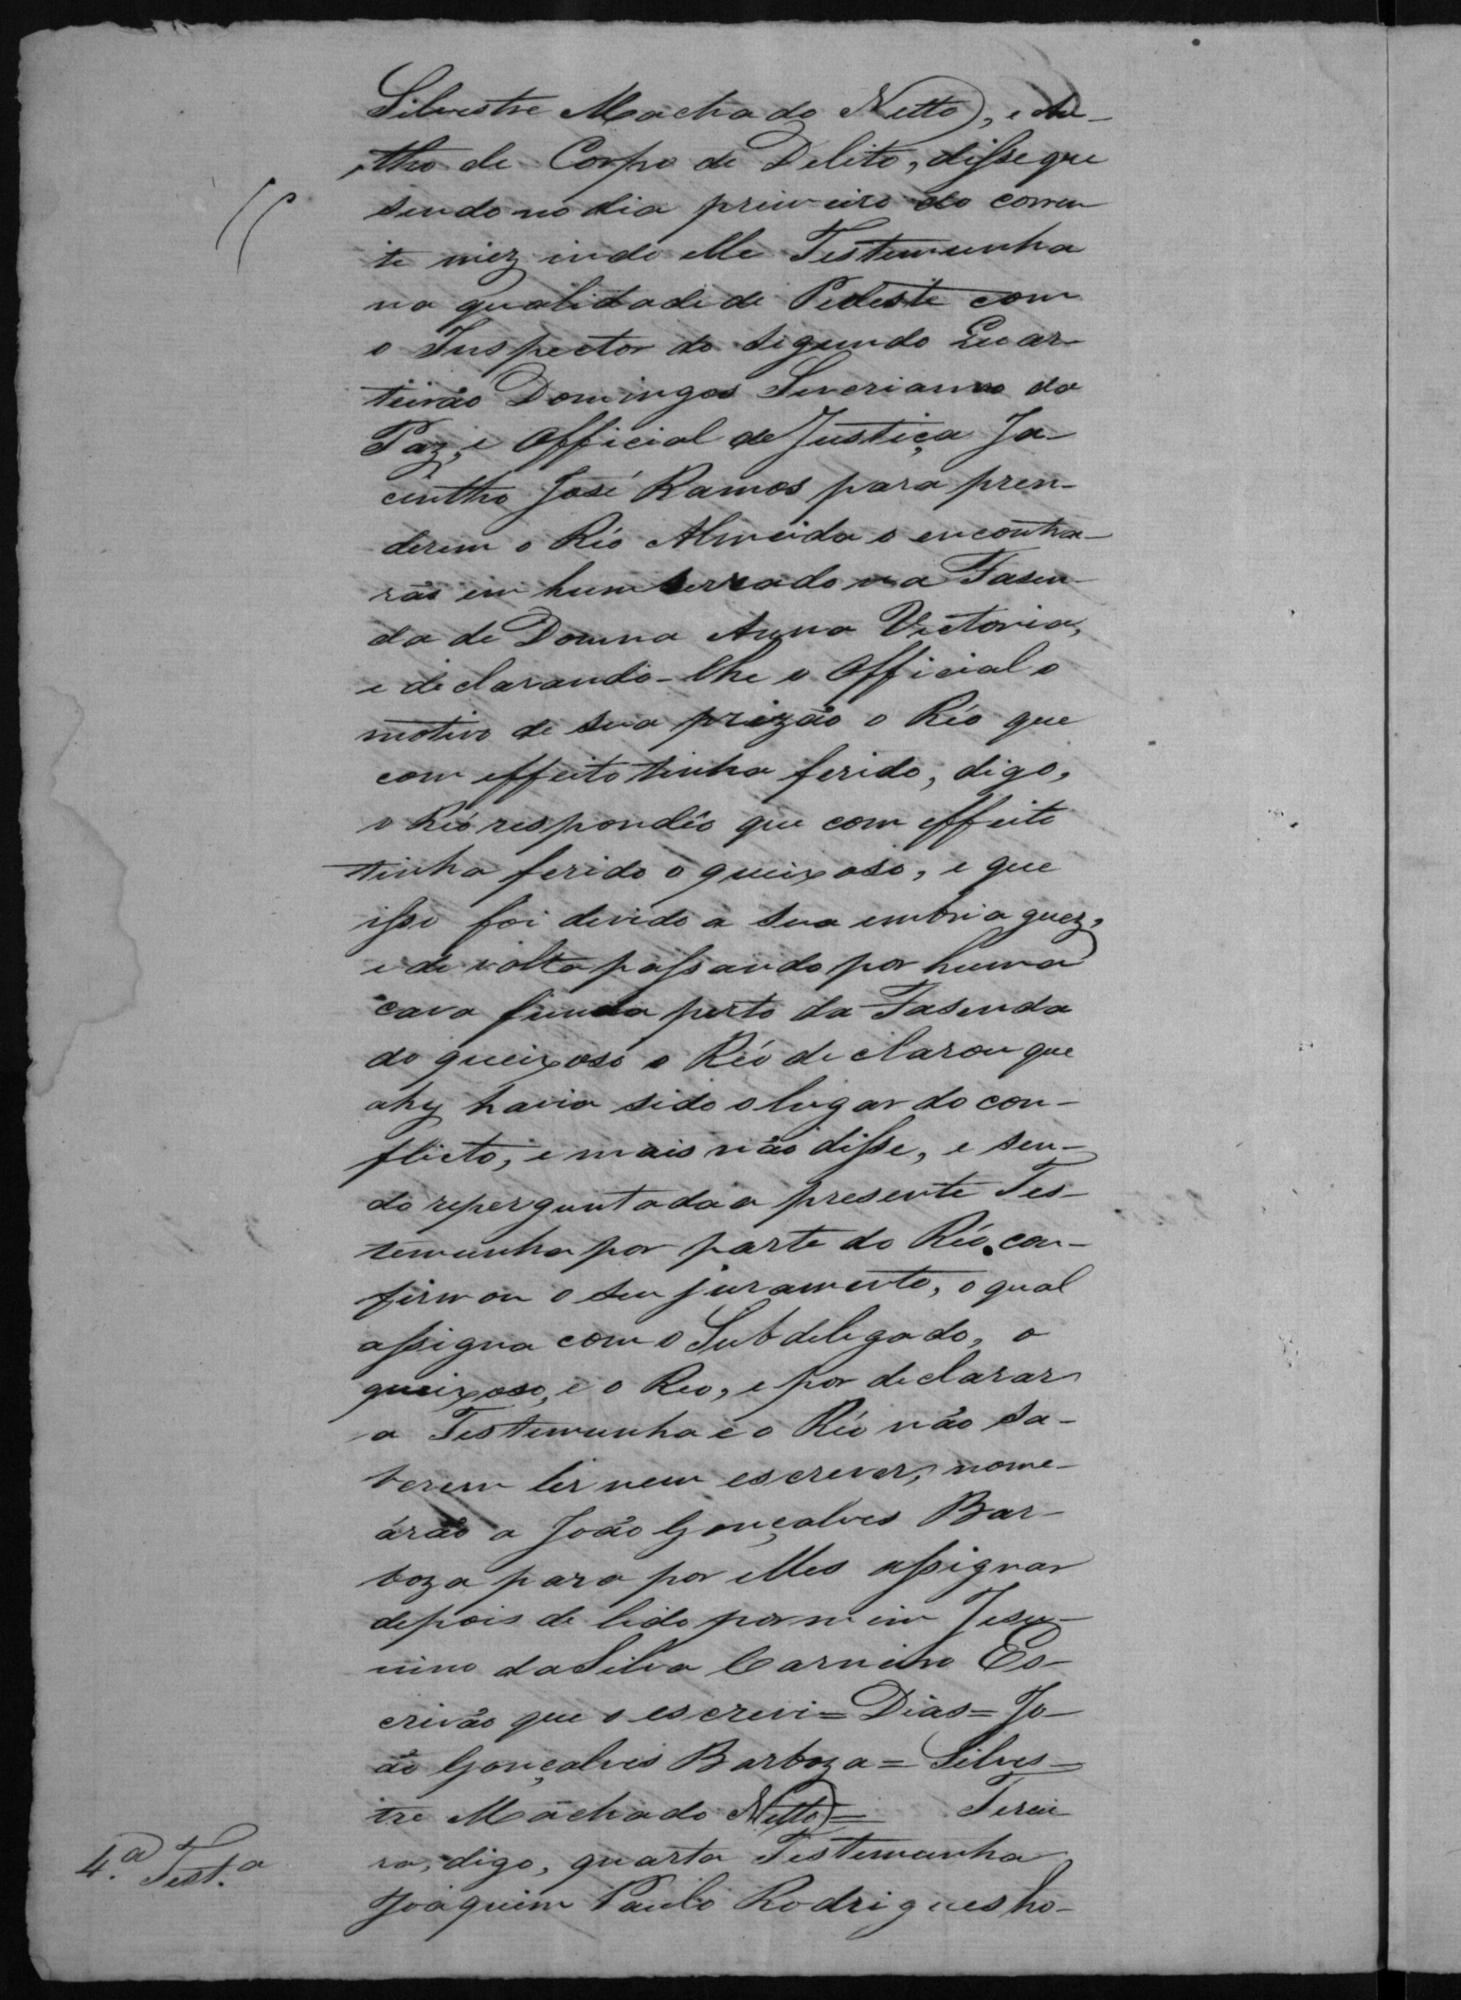 Silvestre Machado Netto, e Au-
tho de Corpo de Delito, disse que
sendo no dia primeiro do corren
te mez indo elle Testemunha
na qualidade de Pedeste com
o Inspector do segundo Quar-
teirão Domingos Severianno da
Paz, e Official de Justiça Ja-
cintho José Ramos para pren-
derem o Réo Almeida o encontra-
rão em hum serrado na Fasen-
da de Donna Anna Victoria,
e declarando-lhe o Official o
motivo de sua prizão o Réo que
com effeito tinha ferido, digo,
o Réo respondêo que com effeito
tinha ferido o queixoso, e que
isso foi devido a sua embriaguez,
e de volta passando por huma
cava funda perto da Fasenda
do queixoso o Réo declarou que
ahy havia sido o lugar do con-
flicto, e mais não disse, e sen-
do reperguntada a presente Tes-
temunha por parte do Réo, con-
firmou o seu juramento, o qual
assigna com o Subdelegado, o
queixoso, e o Reo, e por declarar
a Testemunha e o Réo não sa-
berem ler nem escrever, nome-
árão a João Gonçalves Bar-
boza para por elles assignar
depois de lido por mim Jesu-
ino da Silva Carneiro Es-
crivão que o escrevi = Dias = Jo-
ão Gonçalves Barboza = Silves-
tre Machado Netto = Tercei
ra, digo, quarta Testemunha
4.ª Test.ª
Joaquim Paulo Rodrigues ho-